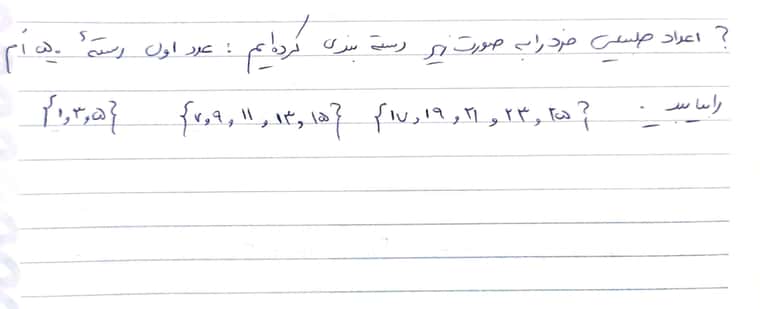 ? اعداد طبیعی فرد را به صورت زیر دسته بندی کرده‌ایم : عدد اول دستهٔ ۵۰ اُم
را بیابید.
{۱,۳,۵} {۷,۹,۱۱,۱۳,۱۵} {۱۷,۱۹,۲۱,۲۳,۲۵}